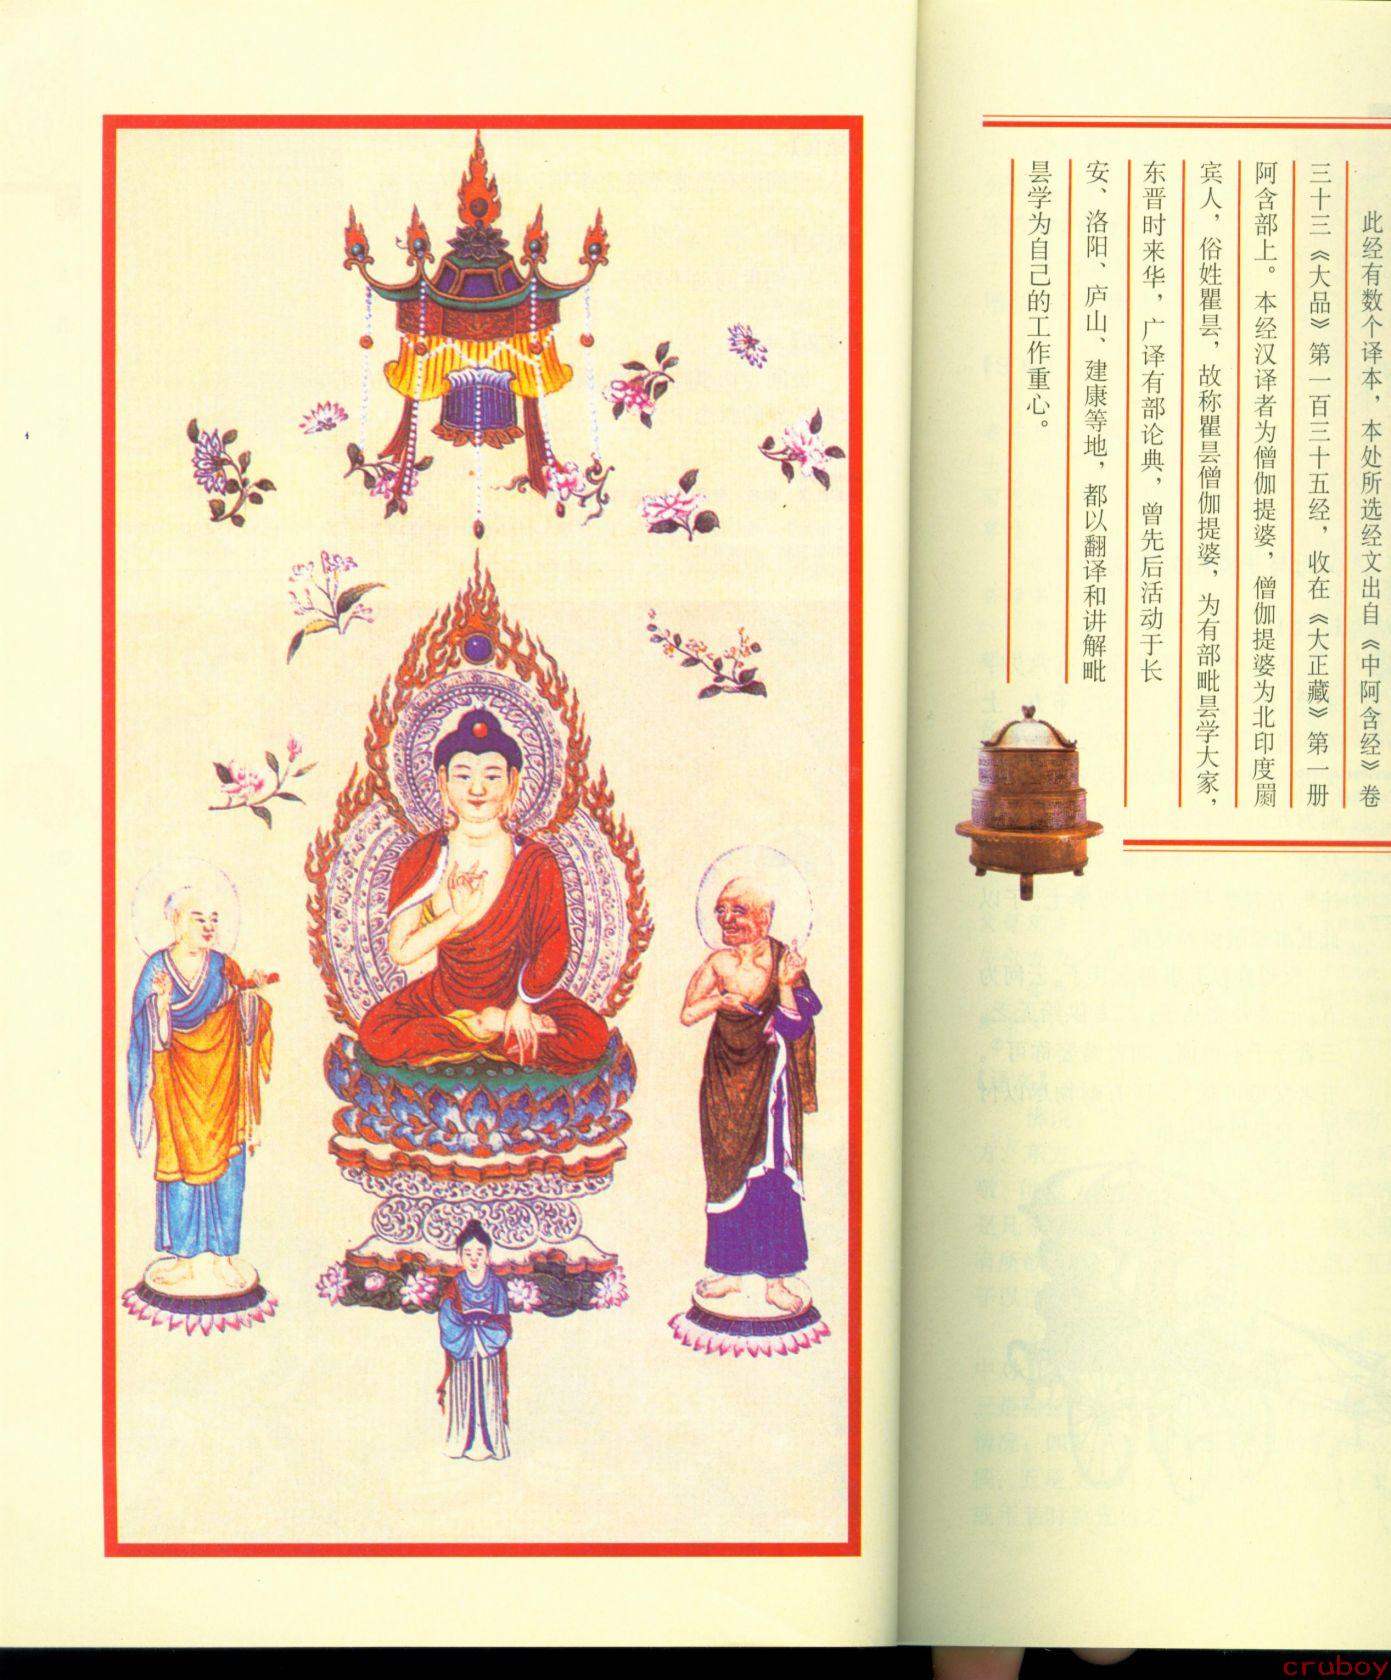 此经有数个译本，本处所选经文出自《中阿含经》卷
三十三《大品》第一百三十五经，收在《大正藏》第一册
阿含部上。本经汉译者为僧伽提婆，僧伽提婆为北印度罽
宾人，俗姓瞿昙，故称瞿昙僧伽提婆，为有部毗昙学大家，
东晋时来华，广译有部论典，曾先后活动于长
安、洛阳、庐山、建康等地，都以翻译和讲解毗
昙学为自己的工作重心。
cruboy